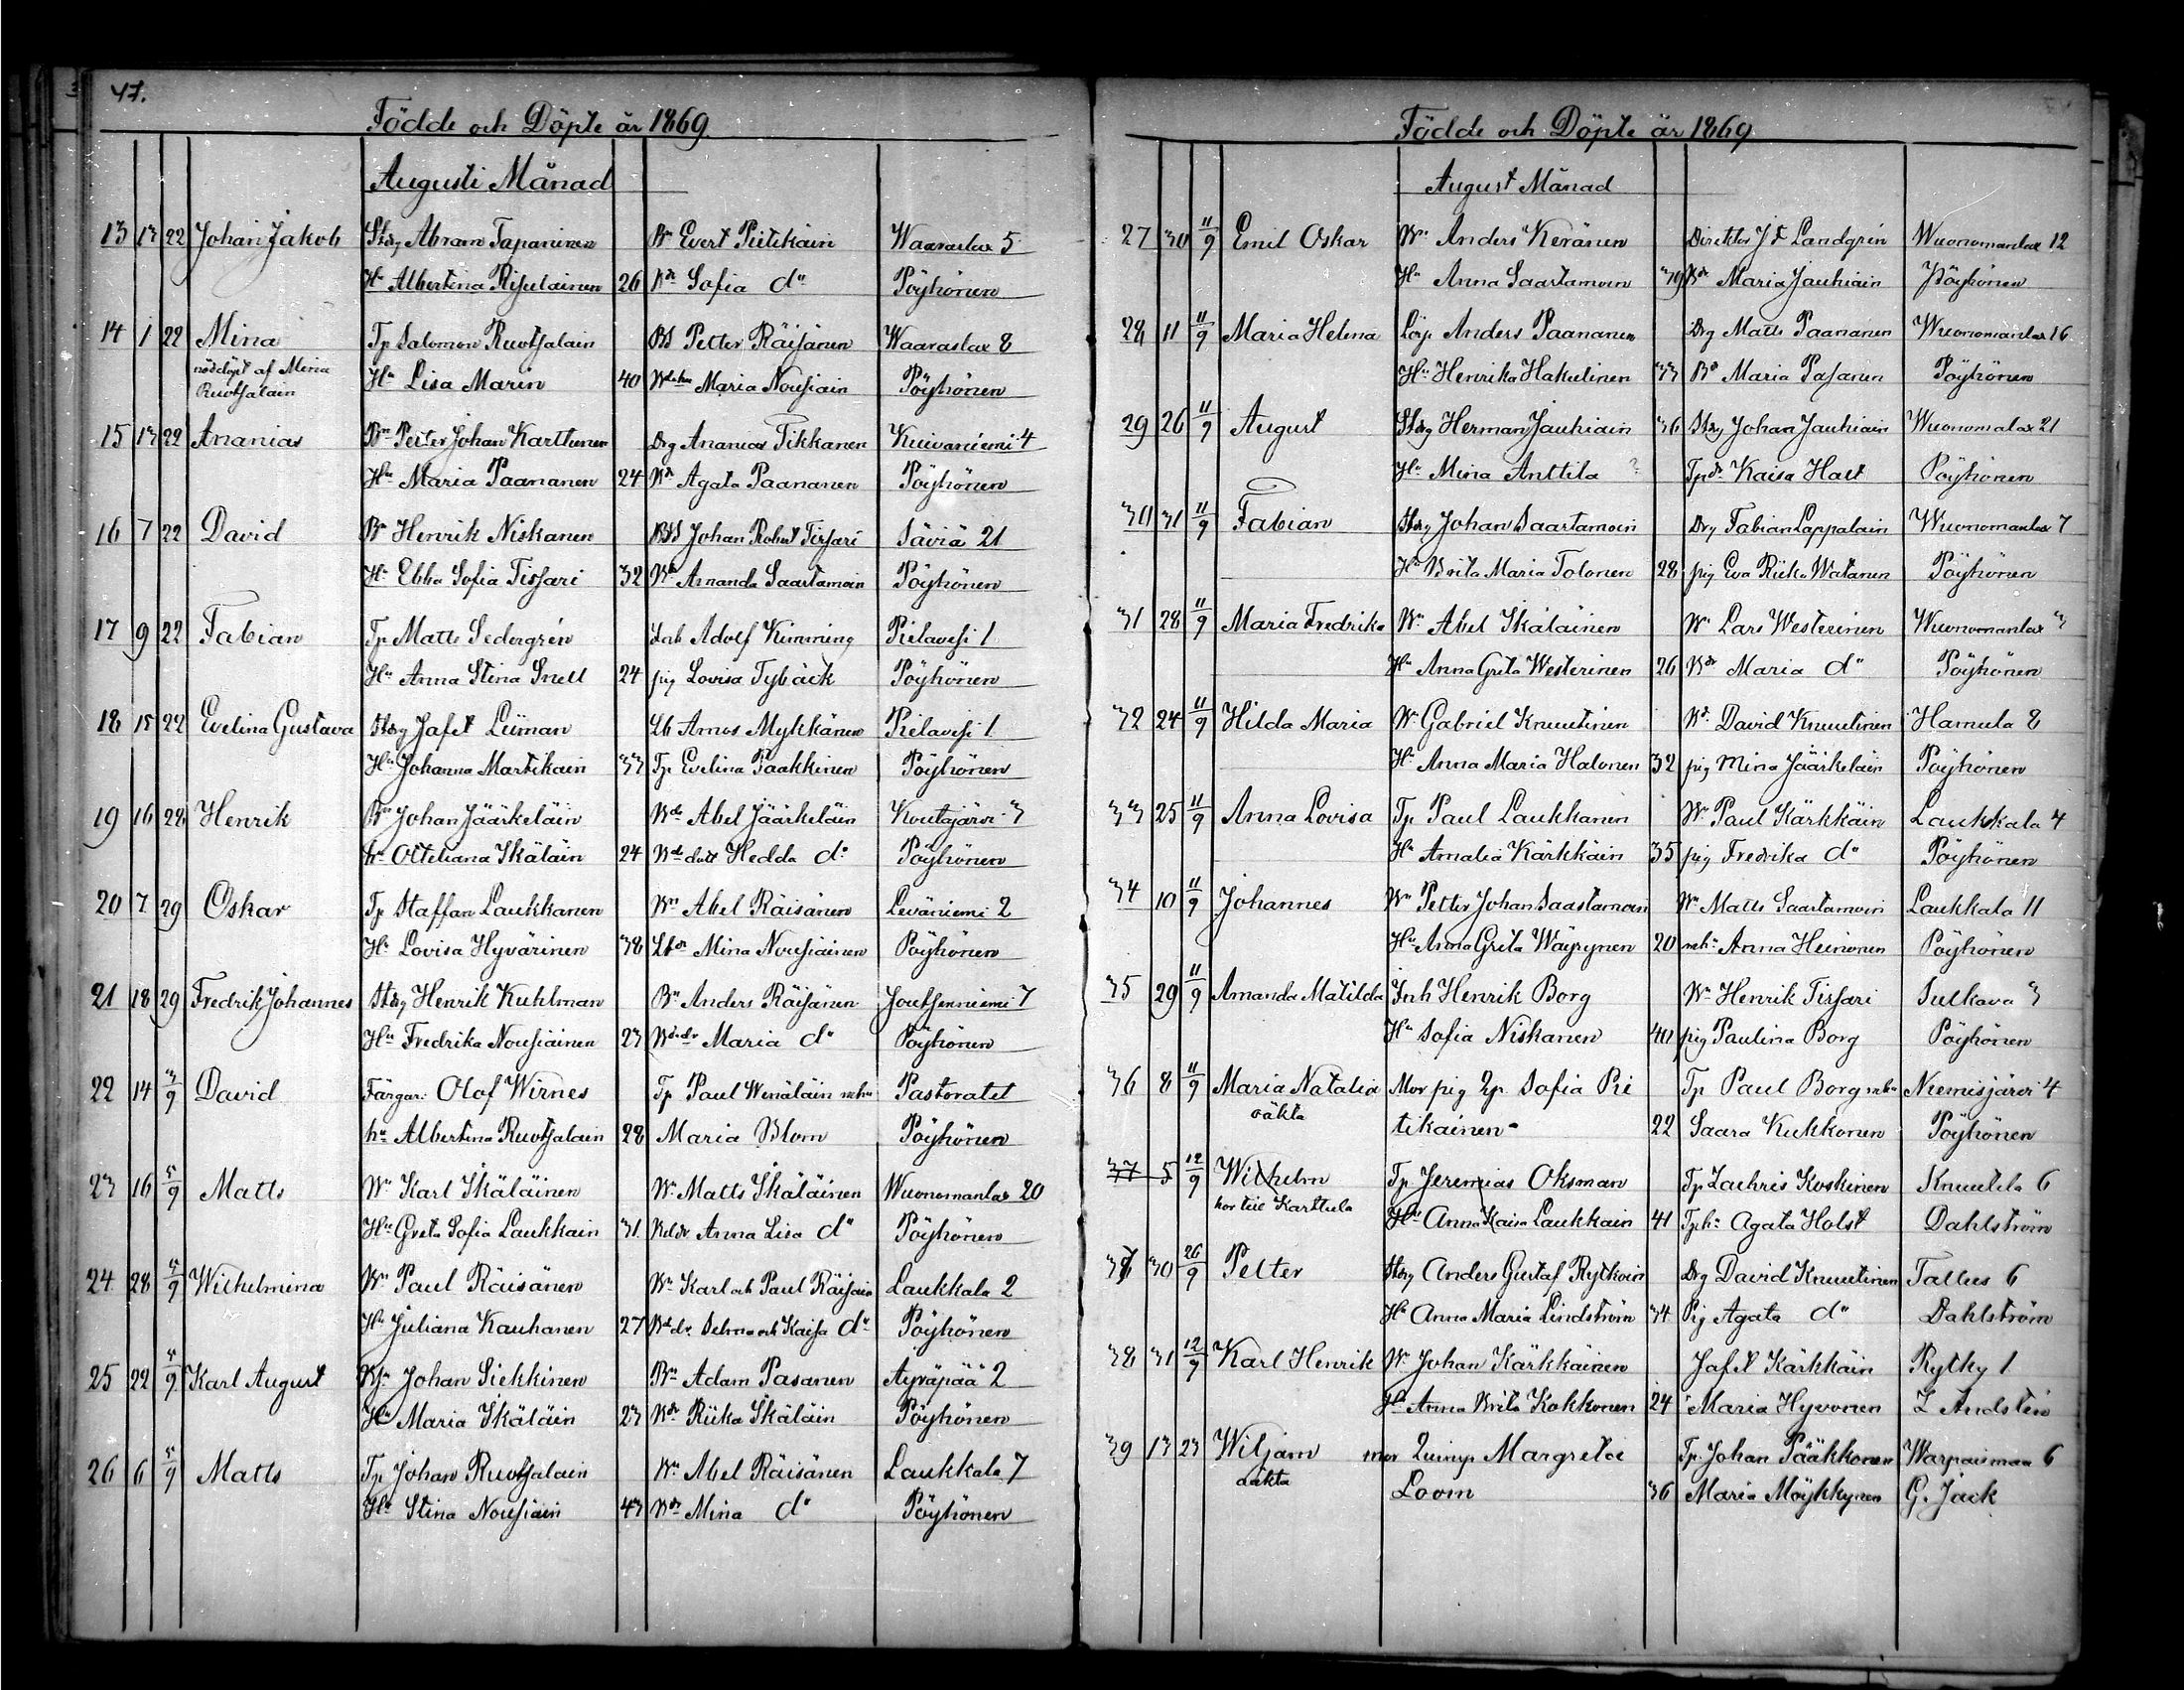 47.
Födde och Döpte år 1869
Augusti Månad
13 13 22 Johan Jakob Stdg Abram Tapaninen Bn Evert Pietikäin Waaraslax 5
Hu Albertina Ripulainen 26 Bdr Sofia do Pöyhönen
14 1 22 Mina Tp Salomon Ruotsalain BS Petter Räisänen Waaraslax 8
nöddöpt af Mina Ruotsalain
Hu Lisa Marin 40 Maria Nousiain Pöyhönen
15 13 22 Ananias Bn Petter Johan Karttunen Drg Ananias Tikkanen Kuivaniemi 4
Hu Maria Paananen 24 Bdr Agata Paananen Pöyhönen
16 7 22 David Bn Henrik Niskanen Johan Robert Tissari Säviä 21
Hu Ebba Sofia Tissari 32 Amanda Saastamoin Pöyhönen
17 9 22 Fabian Tp Matts Sedergrén Inh Adolf Kimming Pielavesi 1
Hu Anna Stina Snell 24 pig Lovisa Tybäck Pöyhönen
18 15 22 Evelina Gustava Stdg Jafet Liiman Lb Amos Mykkänen Pielavesi 1
Hu Johanna Martikain 33 Tp Evelina Paakkinen Pöyhönen
19 16 22 Henrik Bn Johan Jäärkeläin Abel Jäärkeläin Koutajärvi 3
hu Otteliana Skäläin 24 Hedda do Pöyhönen
20 7 29 Oskar Tp Staffan Laukkanen Wn Abel Räisänen Leväniemi 2
Hu Lovisa Hyvärinen 38 Lbdr Mina Nousiainen Pöyhönen
21 18 29 Fredrik Johannes Stdg Henrik Kuhlman Bn Anders Räisänen Joutsenniemi 7
Hu Fredrika Nousiainen 23 Maria do Pöyhönen
22 14 3/9 David Färgar. Olof Wirnes Tp Paul Wenäläin Pastoratet
hu Albertina Ruotsalain 28 Maria Blom Pöyhönen
23 16 5/9 Matts Wn Karl Skäläinen Wn Matts Skäläinen Wuonomanlax 20
Hu Greta Sofia Laukkain 31 Anna Lisa do Pöyhönen
24 28 5/9 Wilhelmina Wn Paul Räisänen Wn Karl och Paul Räisäin Laukkala 2
Hu Juliana Kauhanen 27 Selma och Kaisa do Pöyhönen
25 22 5/9 Karl August Johan Siekkinen Bn Adam Pasanen Äyräpää 2
Hu Maria Skäläin 23 Wdr Riika Skäläin Pöyhönen
26 6 5/9 Matts Tp Johan Ruotsalain Wn Abel Räisänen Laukkala 7
Hu Stina Nousiain 43 Wdr Mina do Pöyhönen
Födde och Döpte år 1869
August Månad
27 30 11/9 Emil Oskar Wn Anders Keränen Direktor J F Landgrén Wuonomanlax 12
Hu Anna Saastamoin 39 Maria Jauhiain Pöyhönen
28 11 11/9 Maria Helena Anders Paananen Drg Matts Paananen Wuonomanlax 16
Hu Henrika Hakulinen 33 Maria Pasanen Pöyhönen
29 26 11/9 August Stdg Herman Jauhiain 36 Stdg Johan Jauhiain Wuonomalax 21
Hu Mina Anttila ? Tpdr Kaisa Hall Pöyhönen
30 31 11/9 Fabian Stdg Johan Saastamoin Drg Fabian Lappalain Wuonomanlax 7
Hu Brita Maria Tolonen 28 pig Eva Riika Watanen Pöyhönen
31 28 11/9 Maria Fredrika Wn Abel Skäläinen Wn Lars Westerinen Wuonomanlax 3
Hu Anna Greta Westerinen 26 Wdr Maria do Pöyhönen
32 24 11/9 Hilda Maria Wn Gabriel Knuutinen David Knuutinen Hamula 8
Hu Anna Maria Halonen 32 pig Mina Jäärkeläin Pöyhönen
33 25 11/9 Anna Lovisa Tp Paul Laukkanen Wn Paul Kärkkäin Laukkala 4
Hu Amalia Kärkkäin 35 pig Fredrika do Pöyhönen
34 10 11/9 Johannes Wn Petter Johan Saastamoin Wn Matts Saastamoin Laukkala 11
Hu Anna Greta Wäyrynen 20 Anna Heinonen Pöyhönen
35 29 11/9 Amanda Matilda Inh Henrik Borg Wn Henrik Tissari Sulkava 3
Hu Sofia Niskanen 40 pig Paulina Borg Pöyhönen
36 8 11/9 Maria Natalia Mor pig Qp. Sofia Pie Tp Paul Borg Niemisjärvi 4
oäkta tikainen 22 Saara Kukkonen Pöyhönen
37 5 12/9 Wilhelm Tp Jeremias Oksman Tp Zachris Koskinen Knuutila 6
hör till Karttula Hu Anna Kaisa Laukkain 41 Tphu Agata Holst Dahlström
37 30 26/9 Petter Stdg Anders Gustaf Rytkoin Drg David Knuutinen Tallus 6
Hu Anna Maria Lindström 34 Pig Agata do Dahlström
38 31 12/9 Karl Henrik Wn Johan Kärkkäinen Jafet Kärkkäin Rytky 1
Hu Anna Brita Kokkonen 24 Maria Hyvonen Z Andstén
39 13 23 Wiljam mor Margreta Tp. Johan Pääkkonen Warpaismaa 6
oäkta Loom 36 Maria Möykkynen G. Jack